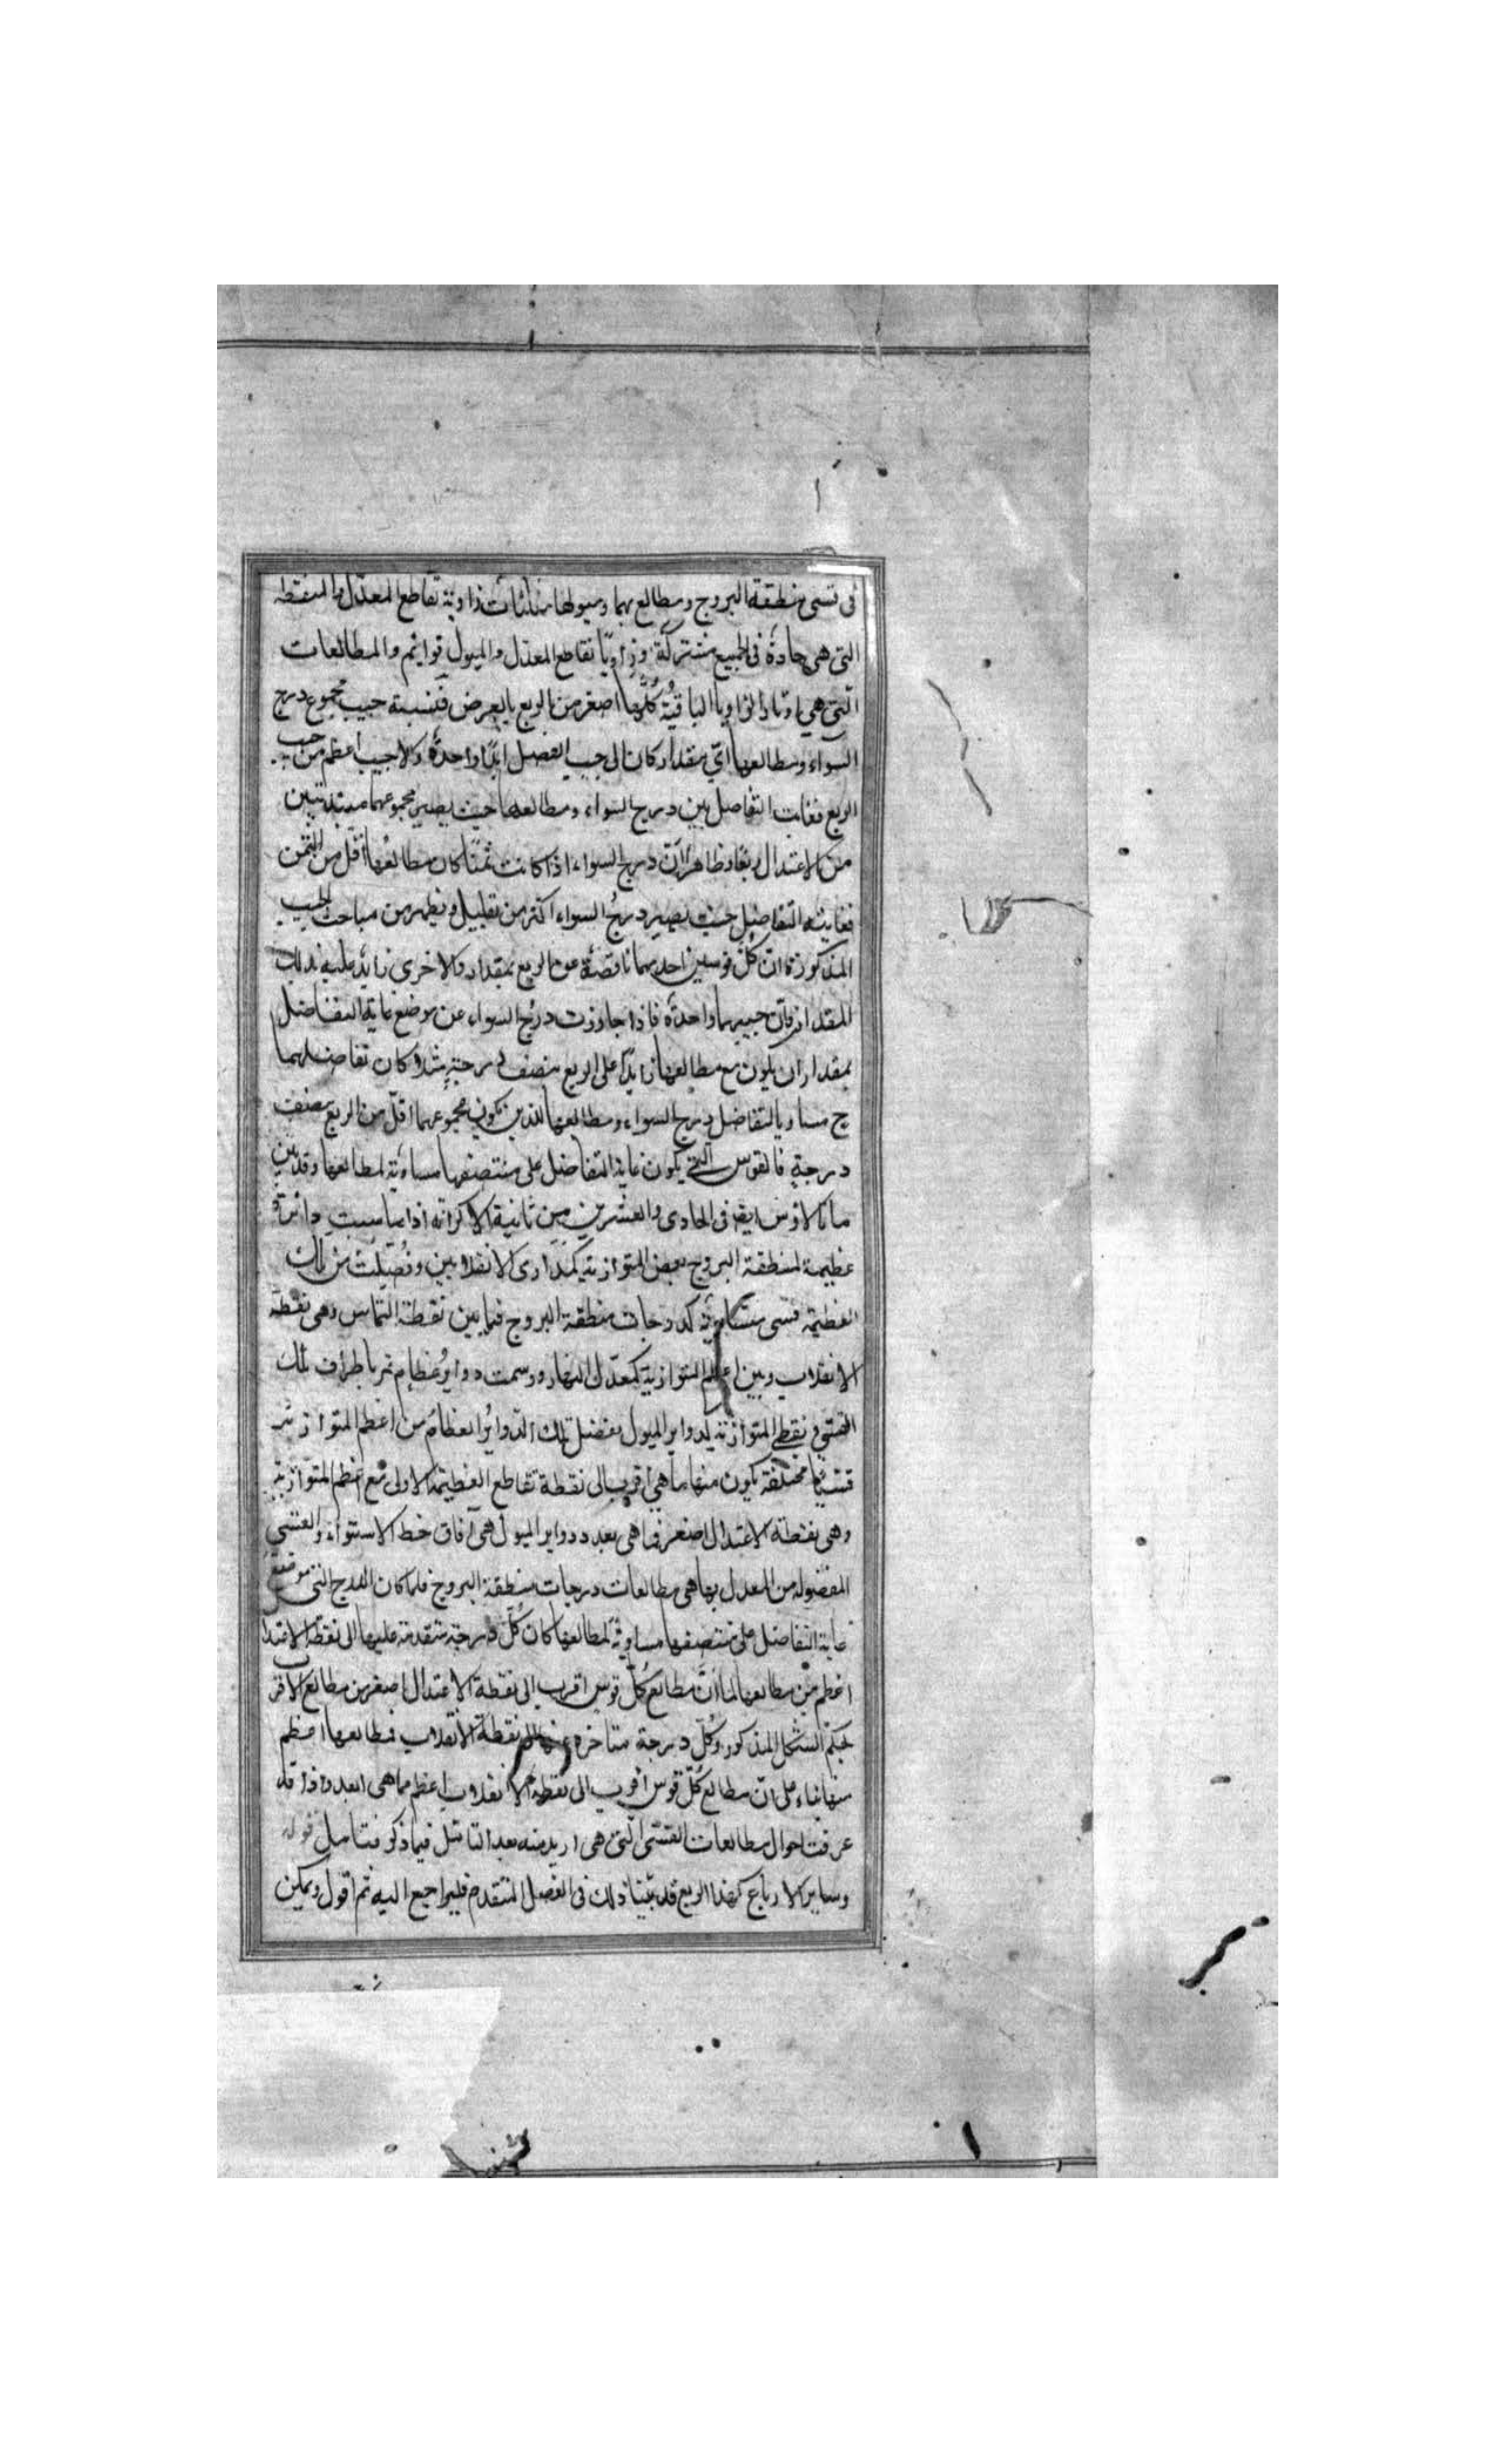 فى قسى منطقة البروج ومطالع بها وميولها مثلثات زاوية تقاطع المعدل والمنطقة
التى هى حادة فى الجميع مشتركة وزاويا تقاطع المعدل والميول قوائم والمطالعات
التى هى اوتار الزاويا الباقية كلها اصغر من الربع بالعرض فنسبة جيب مجموع درج
السواء ومطالعها اى مقدار كان الى جيب الفضل ابدا واحدة ولا جيب اعظم من جيب
الربع فغاية التفاضل بين درج السواء ومطالعها حيث يصير مجموعهما مبتدئين
من الاعتدال ربعا وظاهر ان درج السواء اذا كانت ثمنا كان مطالعها اقل من الثمن
فغاية التفاضل حيث يصير درج السواء اكثر من بقليل ويظهر من مباحث الجيب
المذكورة ان كل قوسين احديهما ناقصة عن الربع بمقدار والاخرى زايد عليه بذلك
المقدار فان جيبهما واحدة فاذا جاوزت درج السواء عن موضع غاية التفاضل
بمقدار ان يكون مع مطالعها زايدا على الربع بنصف درجة مثلا كان تفاضلهما
ح مساويا لتفاضل درج السواء ومطالعها الذين يكون مجموعهما اقل من الربع بنصف
درجة فالقوس التى يكون غاية التفاضل على منتصفها مساوية لمطالعها وقد بين
مانالاوس ايضا فى الحادى والعشرين من ثانية الاكر انه اذا ماست دائرة
عظيمة لمنطقة البروج بعض المتوازية كمدارى الانقلابين وفصلت من تلك
العظيمة قسى متساوية كدرجات منطقة البروج فيما بين نقطة التماس وهى نقطة
الانقلاب وبين اعظم المتوازية كمعدل النهار ورسمت دواير عظام تمر باطراف تلك
القسى وبنقطى المتوازية كدواير الميول بفضل تلك الدواير العظام من اعظم المتوازية
قسيا مختلفة يكون منها ما هى اقرب الى نقطة تقاطع العظيمة الاولى مع اعظم المتوازية
وهى نقطة الاعتدال اصغر مما هى بعد ودواير الميول هى آفاق خط الاستواء والقسى
المفصولة من المعدل بها هى مطالعات درجات منطقة البروج فلما كان الدرج التى موضع
غاية التفاضل على منتصفها مساوية لمطالعها كان كل درجة متقدمة عليها الى نقطة الاعتدا
اعظم من مطالعها لما ان مطالع كل قوس اقرب الى نقطة الاعتدال اصغر من مطالع الاقرب
بحكم الشكل المذكور وكل درجة متاخرة عنها الى نقطة الانقلاب فمطالعها اعظم
منها بناء على ان مطالع كل قوس اقرب الى نقطة الانقلاب اعظم مما هى ابعد واذا قد
عرفت احوال مطالعات القسى التى هى ازيد منه بعد التامل فيما ذكر فتامل قوله
وساير الارباع كهذا الربع قد بينا ذلك فى الفصل المتقدم فليراجع اليه ثم اقول ويمكن